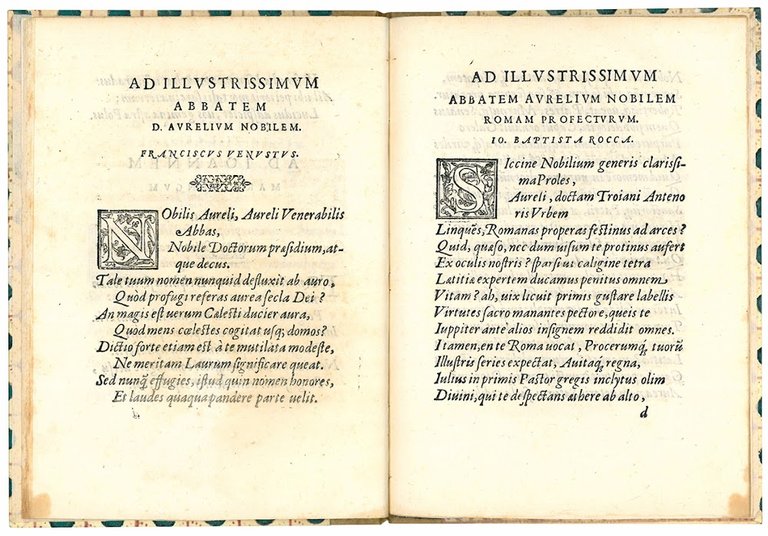 AD ILLVSTRISSIMVM
ABBATEM
D. AVRELIVM NOBILEM.
FRANCISCVS VENVSTVS.
NObilis Aureli, Aureli Venerabilis
Abbas,
Nobile Doctorum præsidium, at-
que decus.
Tale tuum nomen nunquid defluxit ab auro,
Quòd profugi referas aurea secla Dei?
An magis est uerum Cælesti ducier aura,
Quod mens cœlestes cogitat usq; domos?
Dictio forte etiam est à te mutilata modeste,
Ne meritam Laurum significare queat.
Sed nunq̃ effugies, istud quin nomen honores,
Et laudes quaqua pandere parte uelit.
AD ILLVSTRISSIMVM
ABBATEM AVRELIVM NOBILEM
ROMAM PROFECTVRVM.
IO. BAPTISTA ROCCA.
SIccine Nobilium generis clarissi-
ma Proles,
Aureli, doctam Troiani Anteno
ris Vrbem
Linques, Romanas properas festinus ad arces?
Quid, quæso, nec dum uisum te protinus aufert
Ex oculis nostris? sparsi ut caligine tetra
Lætitiæ expertem ducamus penitus omnem
Vitam? ah, uix licuit primis gustare labellis
Virtutes sacro manantes pectore, queis te
Iuppiter ante alios insignem reddidit omnes.
I tamen, en te Roma uocat, Procerumq́; tuorũ
Illustris series expectat, Auitaq́; regna,
Iulius in primis Pastor gregis inclytus olim
Diuini, qui te despectans æthere ab alto,
d